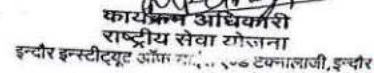 कार्यक्रम अधिकारी
राष्ट्रीय सेवा योजना
इन्दौर इन्स्टीट्यूट ऑफ टेक्नालाजी, इन्दौर